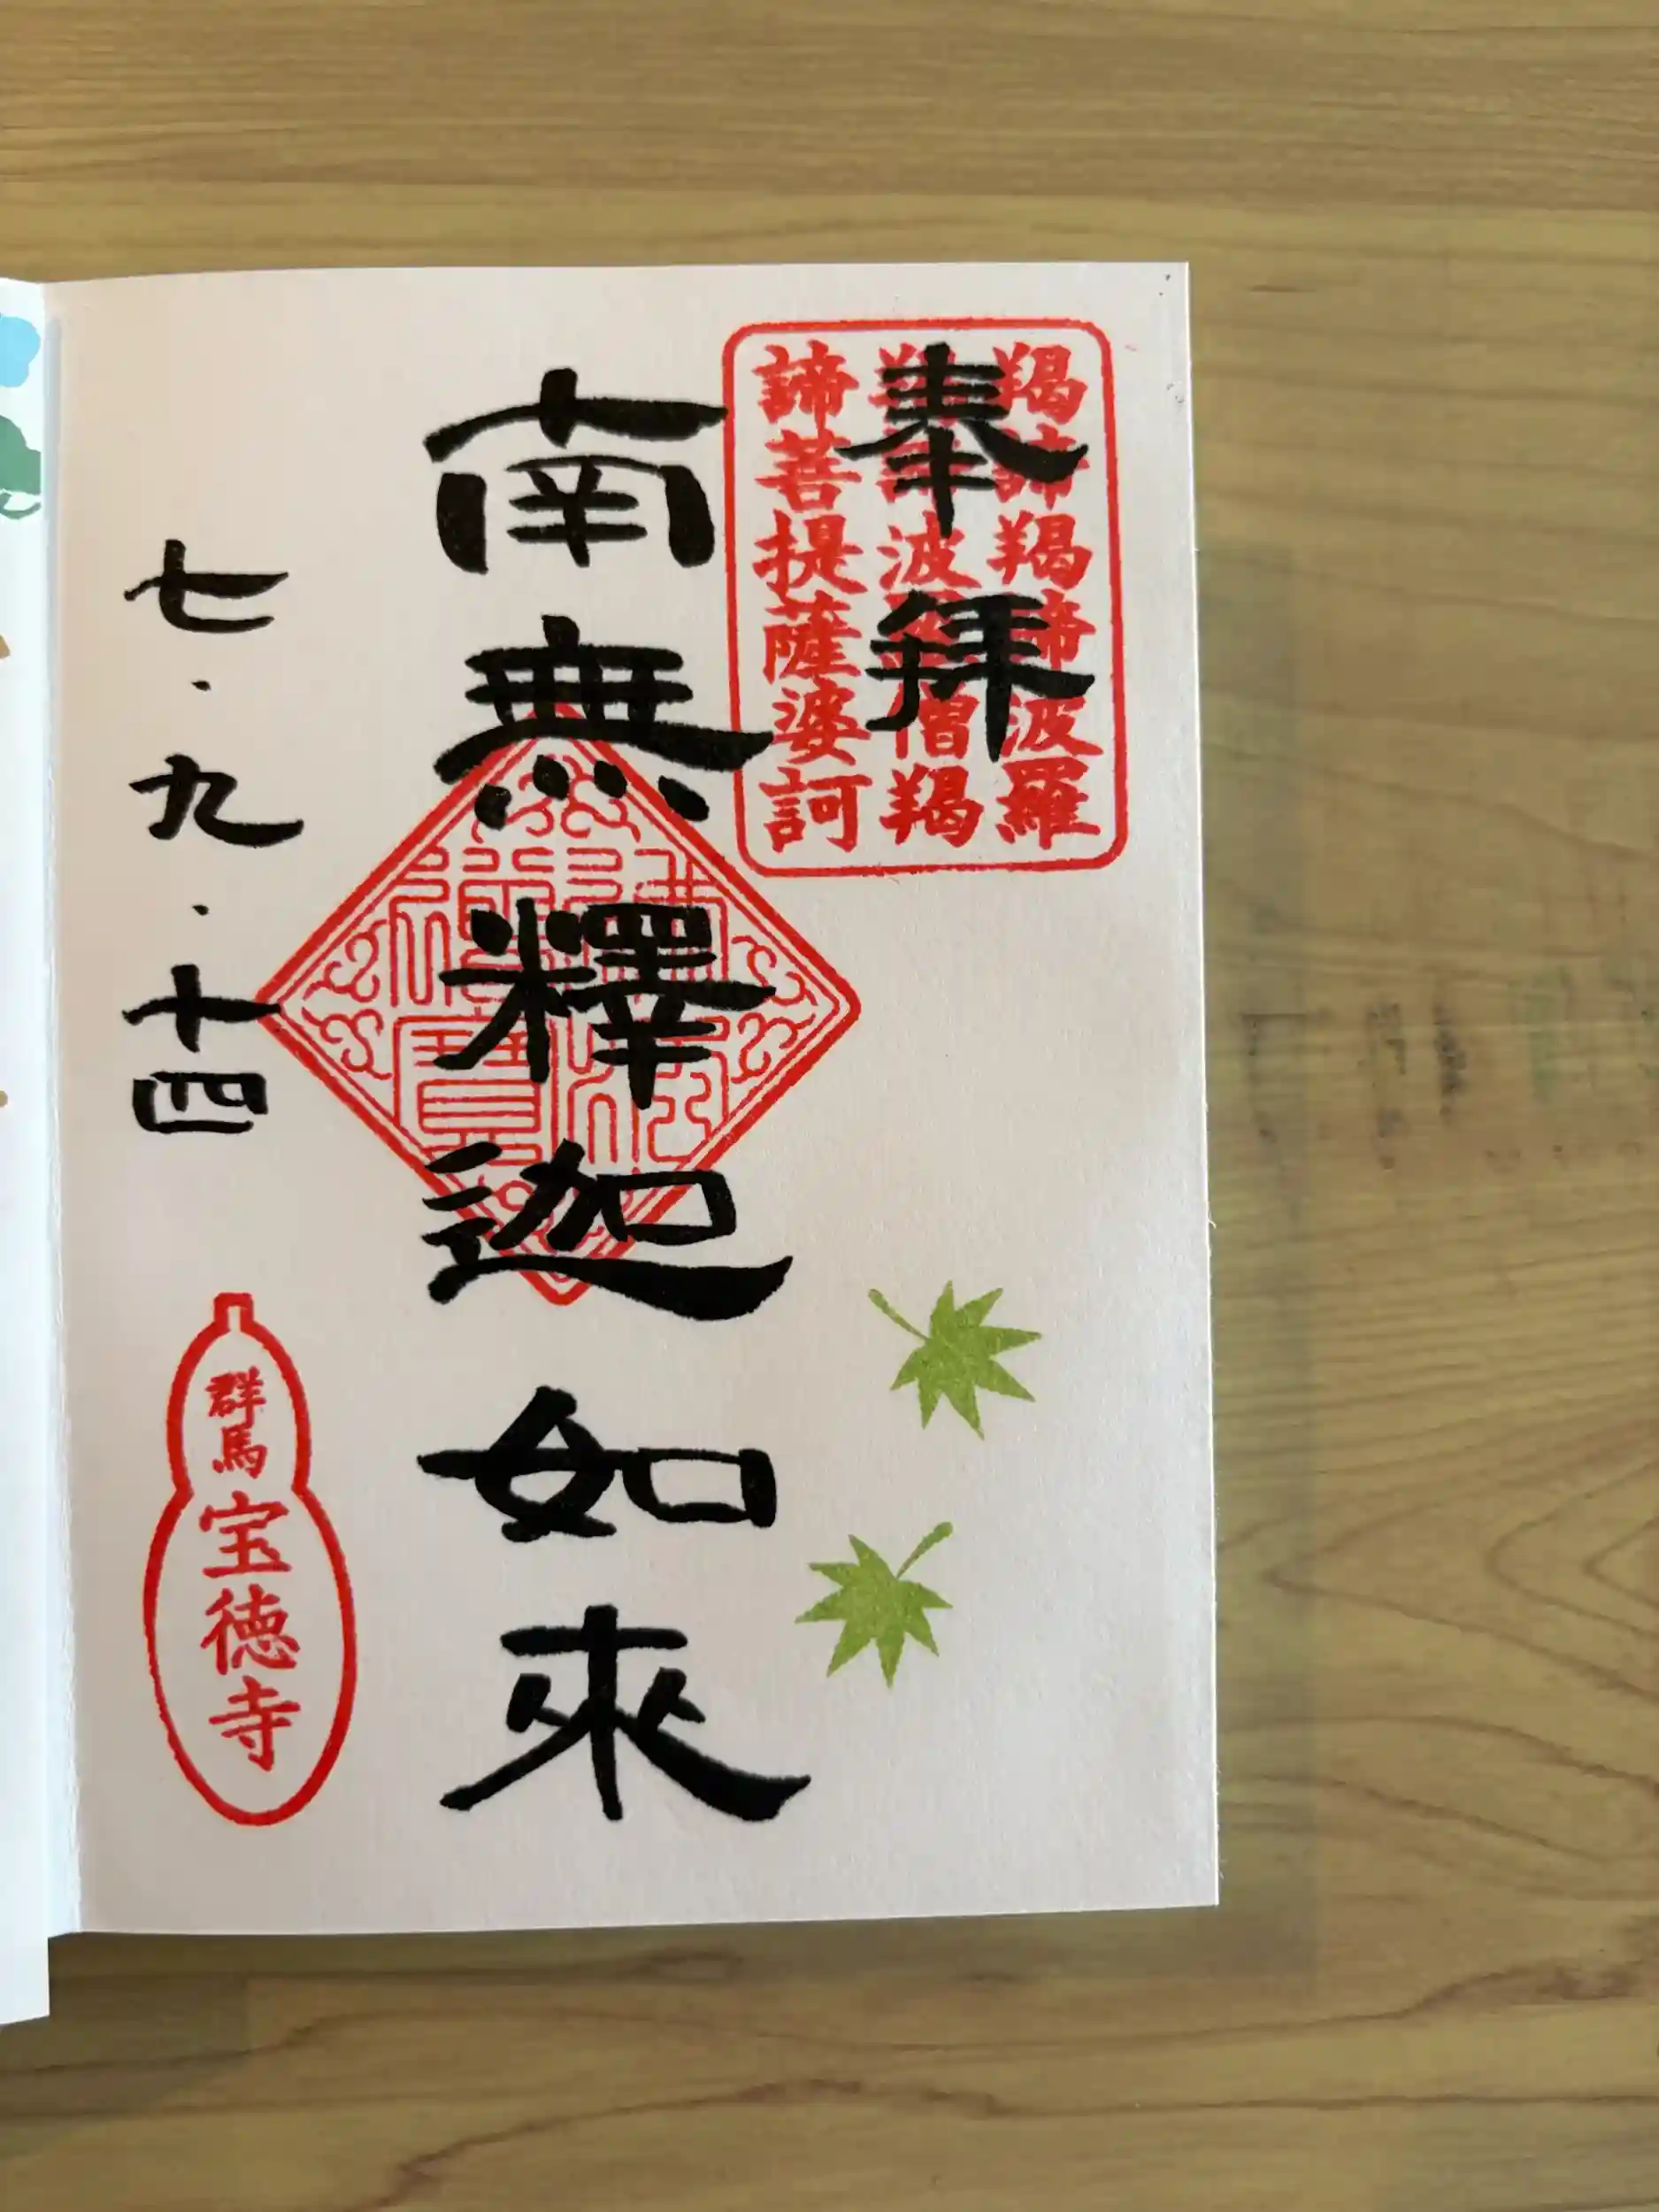 奉拝
羯諦羯諦波羅
羯諦波羅僧羯
諦菩提薩婆訶
南無釋迦如來
七・九・十四
群馬
宝徳寺